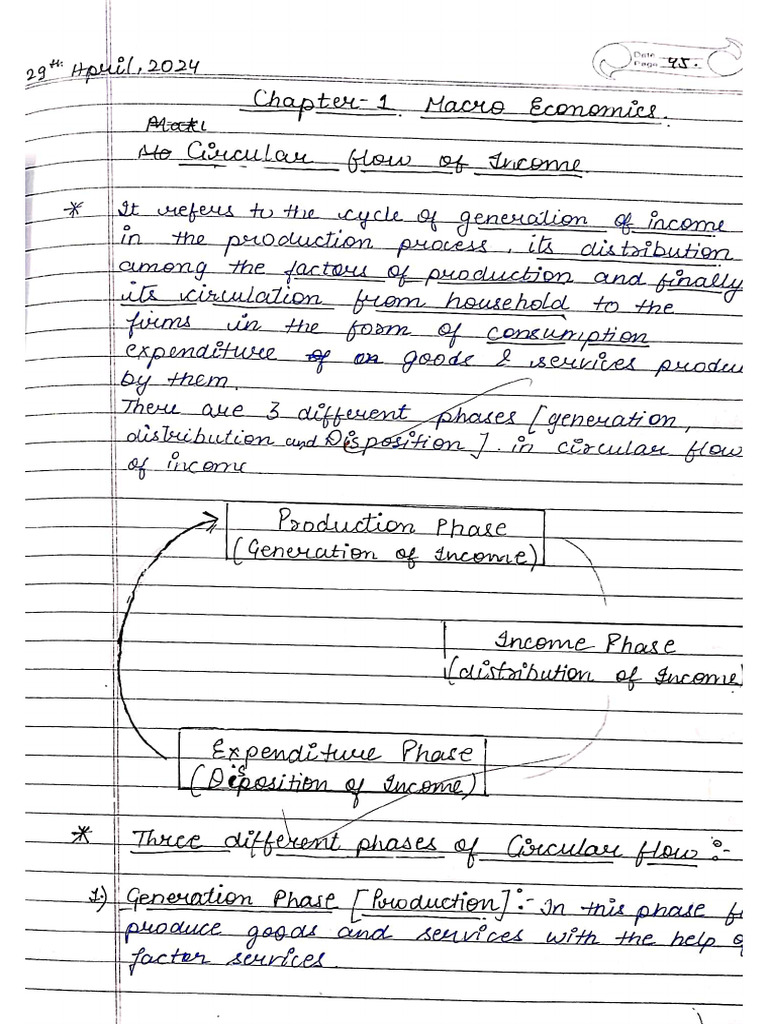 29th April, 2024
Date
Page 45.
Chapter-1 Macro Economics.
Circular flow of Income.
* It refers to the cycle of generation of income
in the production process, its distribution
among the factors of production and finally
its circulation from household to the
firms in the form of consumption
expenditure on goods & services produ
by them.
There are 3 different phases [generation,
distribution and Disposition]. in circular flow
of income
Production Phase
(Generation of Income)
Income Phase
(distribution of Income)
Expenditure Phase
(Disposition of Income)
* Three different phases of Circular flow :-
1.) Generation Phase [Production] :- In this phase
produce goods and services with the help
factor services.